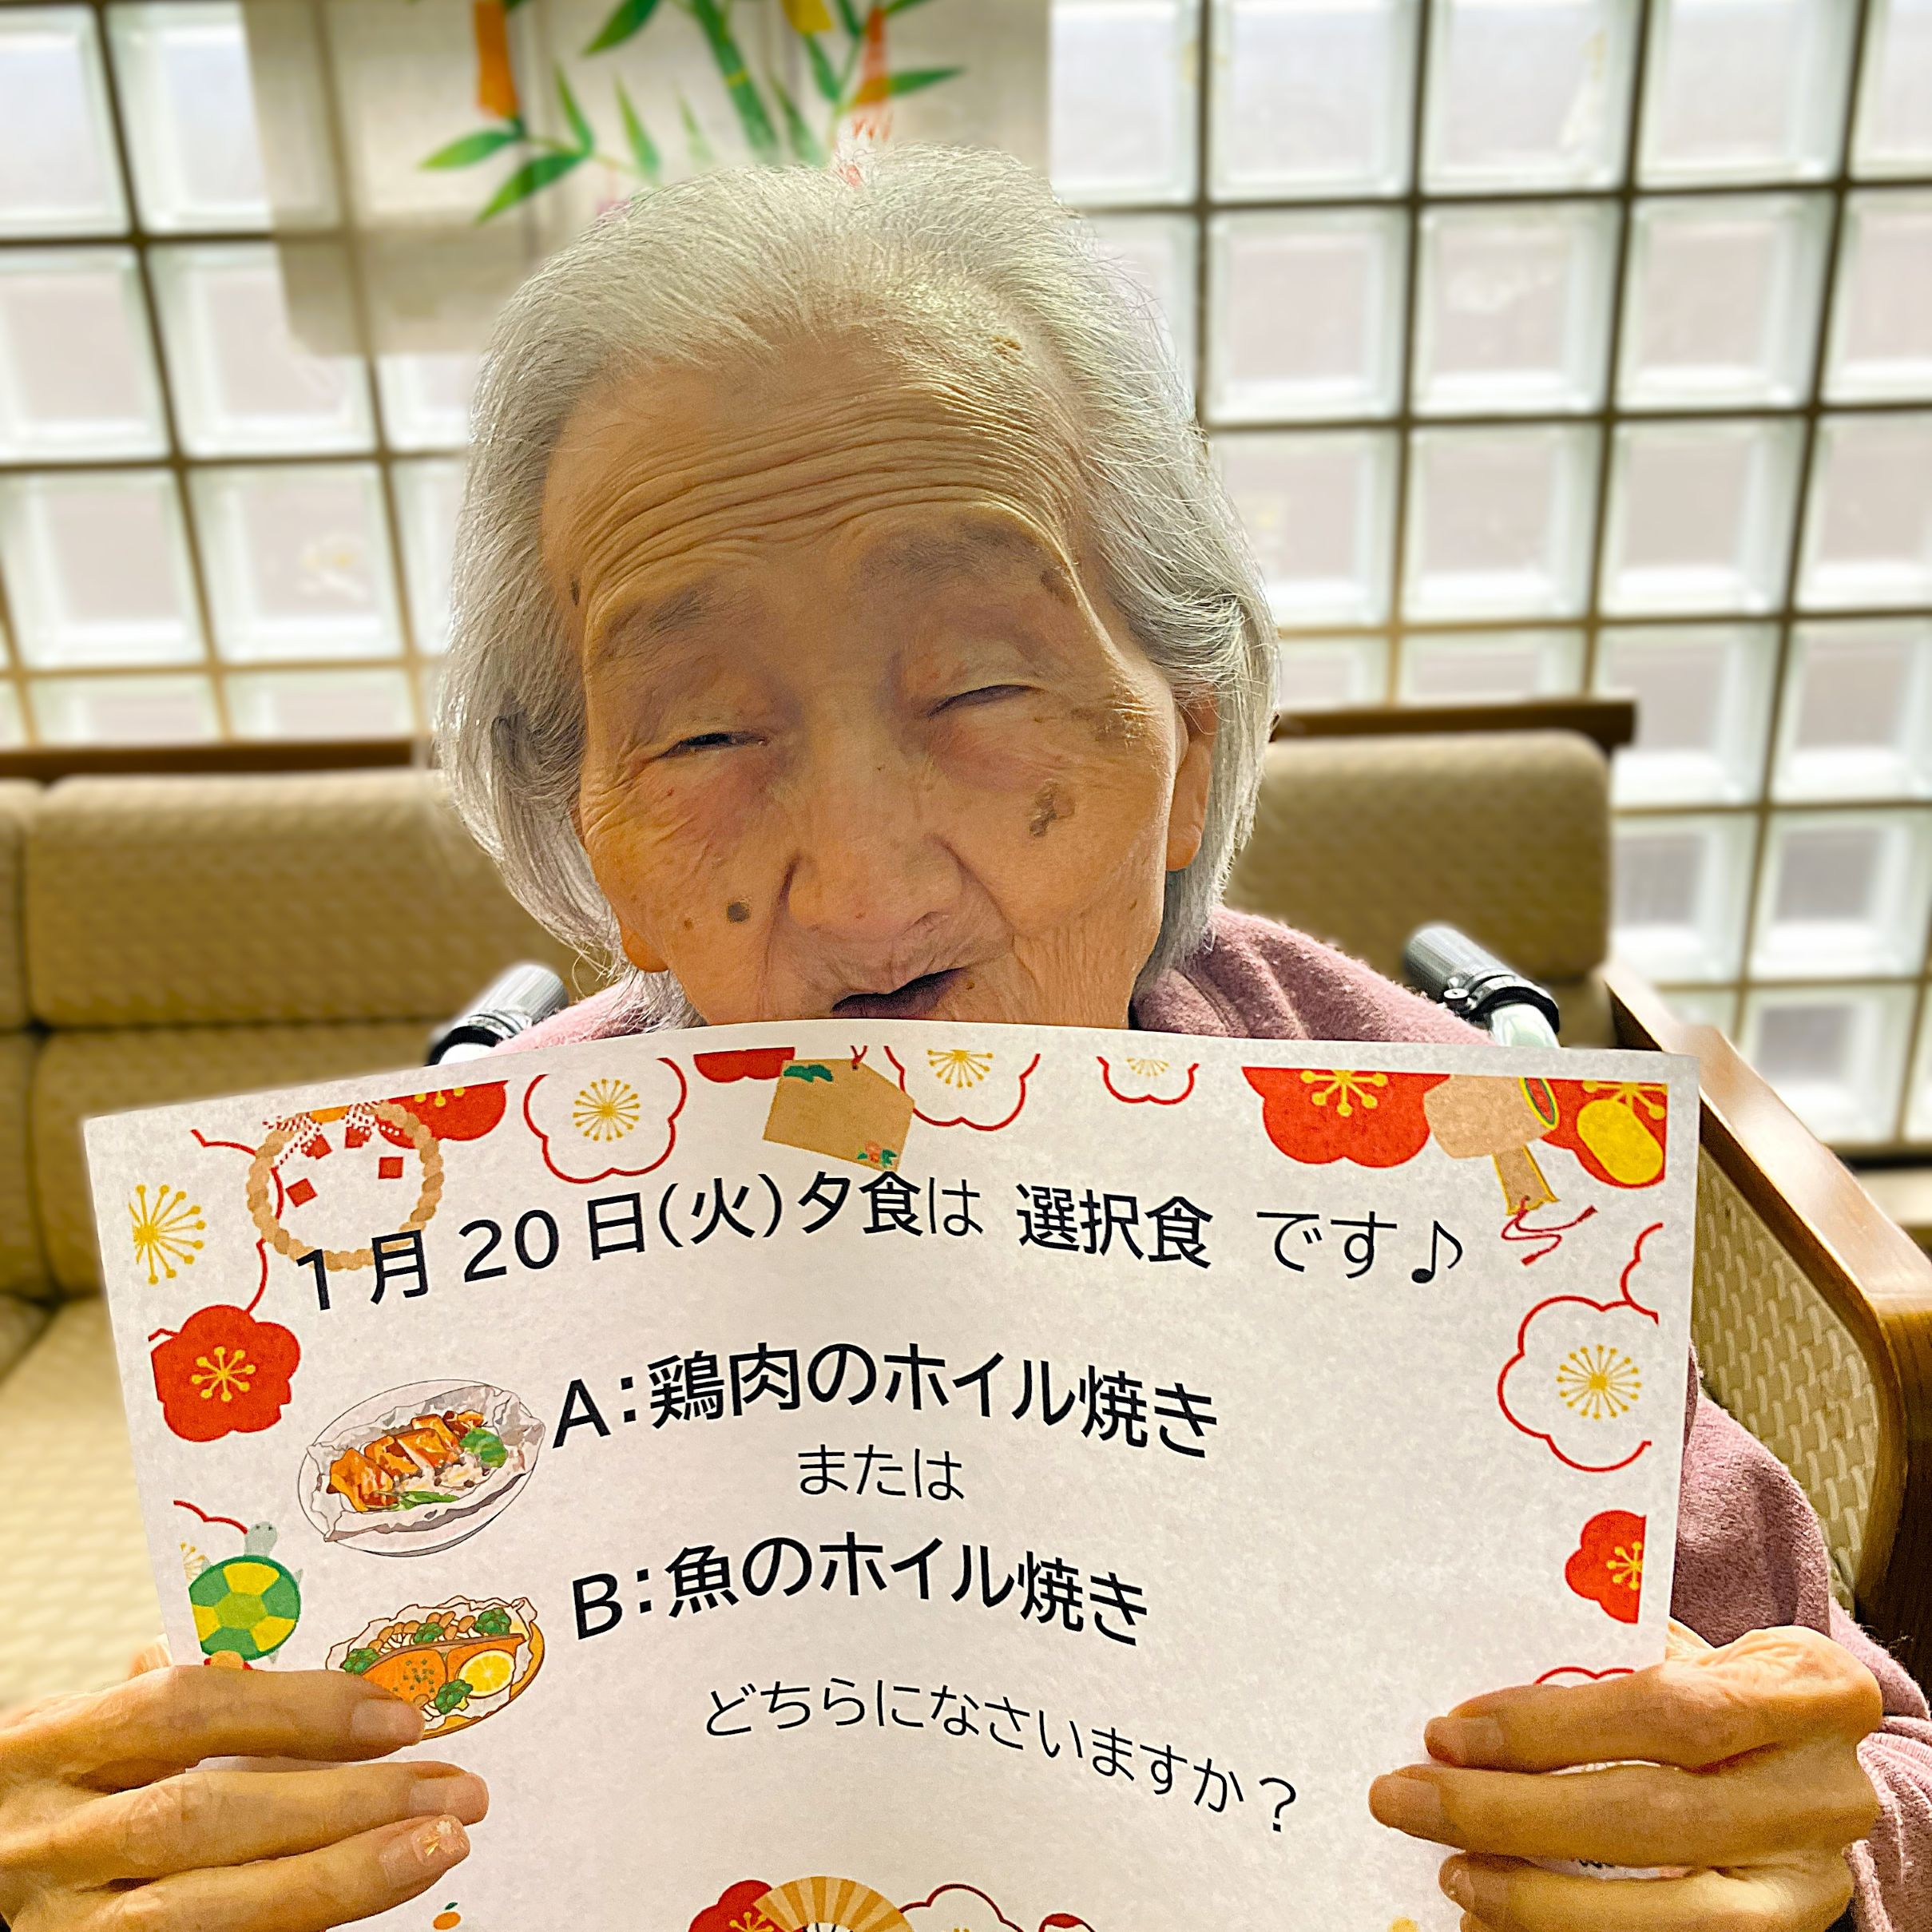 1月20日(火)夕食は 選択食 です♪
A:鶏肉のホイル焼き
または
B:魚のホイル焼き
どちらになさいますか?